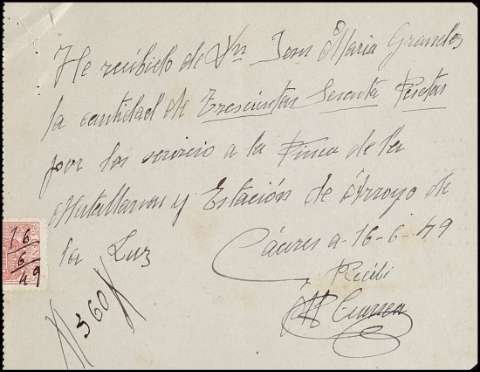 He recibido de Dn Jose Maria Granados
la cantidad de Trescientas Sesenta Pesetas
por los servicio a la Finca de la
Matallana y Estación de Arroyo de
la Luz
Cáceres a-16-6-49
Recibi
16
6
49
#360#